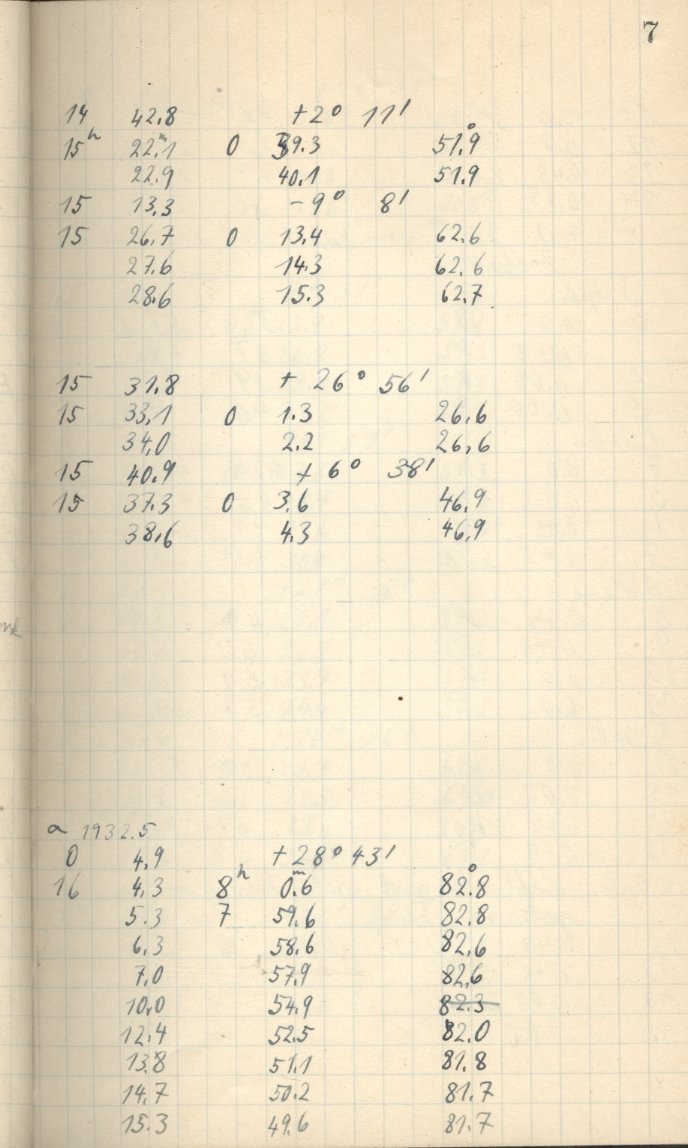 7
14 42.8 +2° 11'
15ʰ 22.ᵐ1 0 39.3 51.°9
22.9 40.1 51.9
15 13.3 -9° 8'
15 26.7 0 13.4 62.6
27.6 14.3 62.6
28.6 15.3 62.7
15 31.8 + 26° 56'
15 33.1 0 1.3 26.6
34.0 2.2 26.6
15 40.9 + 6° 38'
15 37.3 0 3.6 46.9
38.6 4.3 46.9
α 1932.5
0 4.9 +28° 43'
16 4.3 8ʰ 0.ᵐ6 82.°8
5.3 7 59.6 82.8
6.3 58.6 82.6
7.0 57.9 82.6
10.0 54.9 82.3
12.4 52.5 82.0
13.8 51.1 81.8
14.7 50.2 81.7
15.3 49.6 81.7